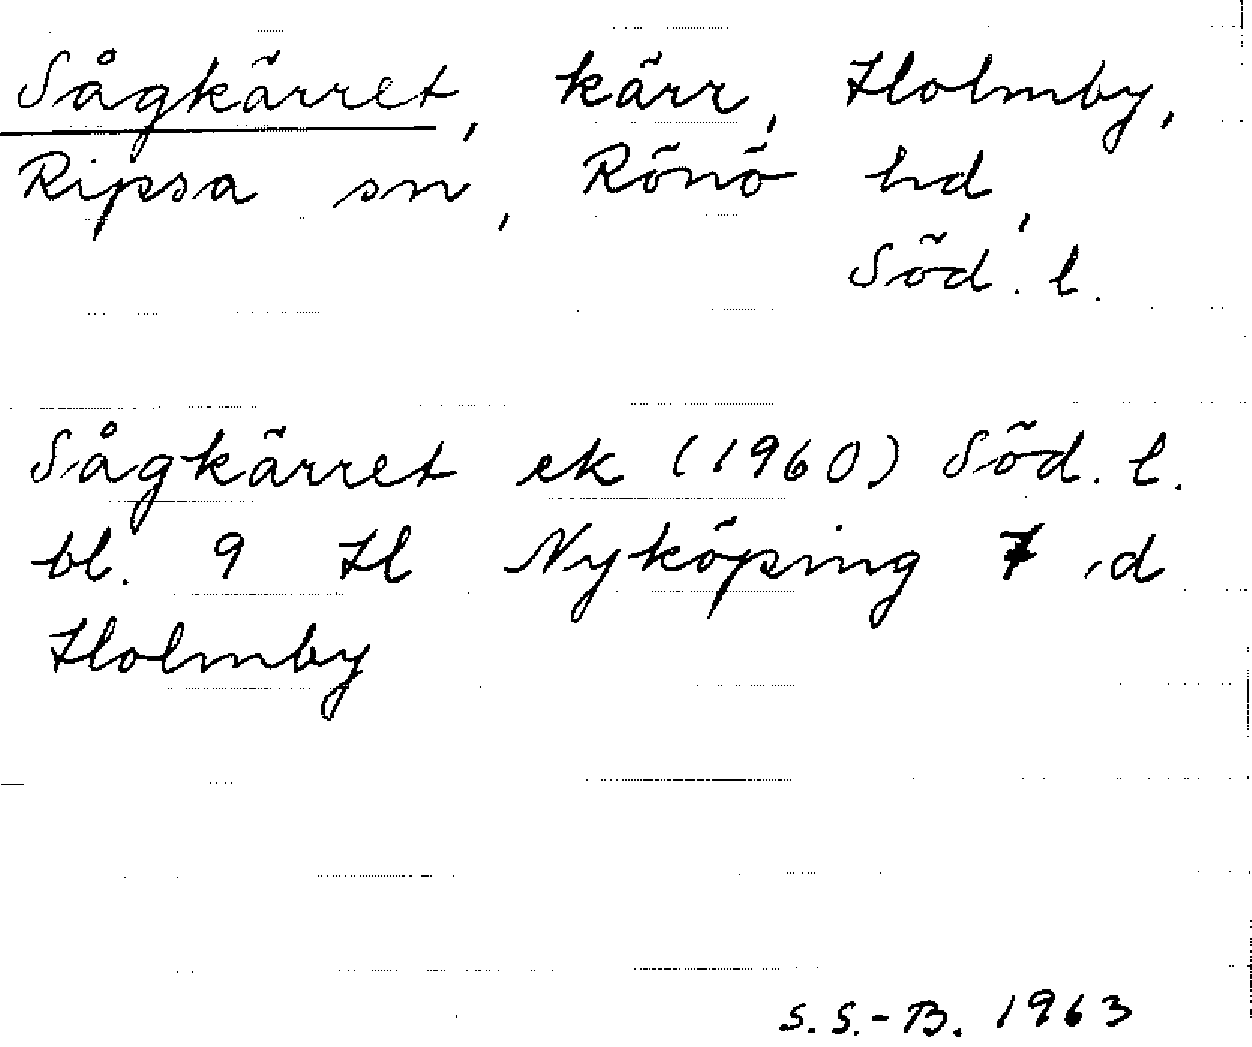 Sågkärret, kärr, Holmby,
Ripsa sn, Rönö hd,
Söd. l.
Sågkärret ek (1960) Söd. l.
bl. 9 H Nyköping 7 d
Holmby
S.S.-B. 1963